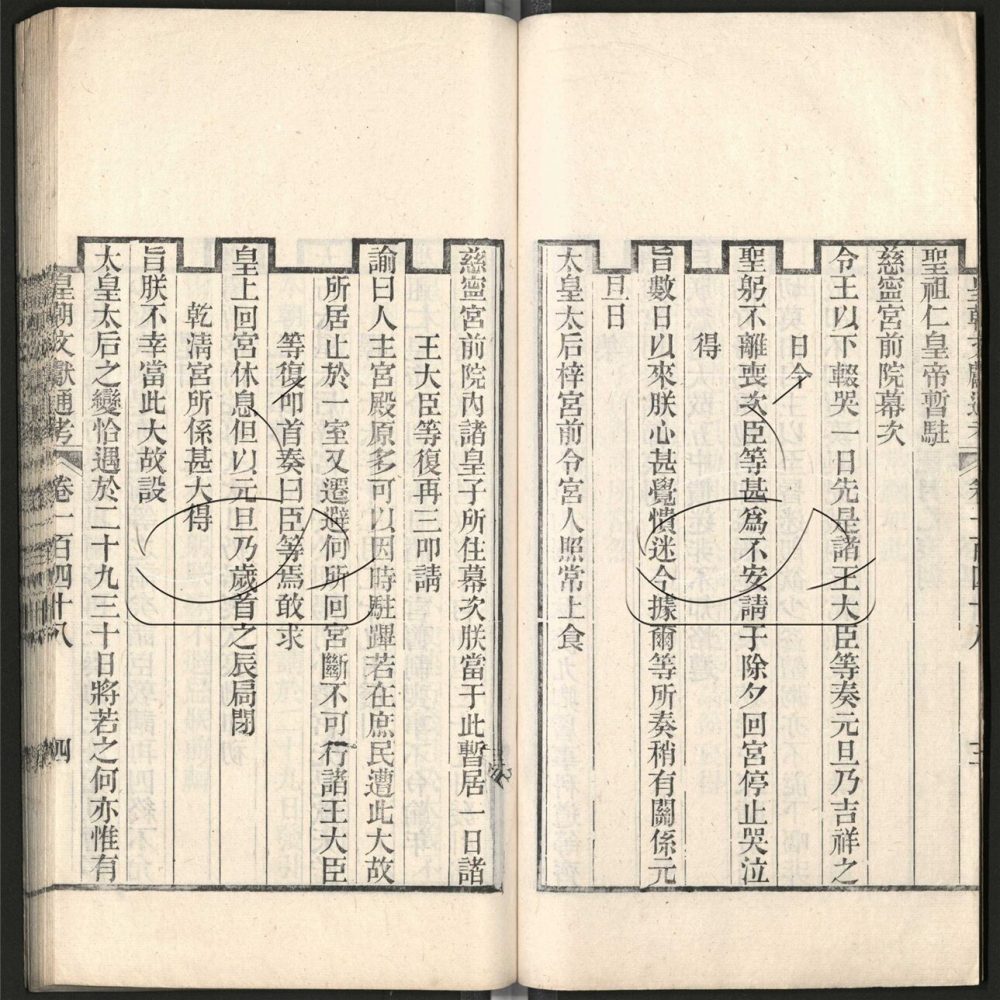 聖祖仁皇帝暫駐
慈寧宮前院幕次
令王以下輟哭一日先是諸王大臣等奏元旦乃吉祥之
日今
聖躬不離喪次臣等甚爲不安請于除夕回宮停止哭泣
得
旨數日以來朕心甚覺憒迷今據爾等所奏稍有關係元
旦日
太皇太后梓宮前令宮人照常上食
慈寧宮前院內諸皇子所住幕次朕當于此暫居一日諸
王大臣等復再三叩請
諭曰人主宮殿原多可以因時駐蹕若在庶民遭此大故
所居止於一室又遷避何所回宮斷不可行諸王大臣
等復叩首奏曰臣等焉敢求
皇上回宮休息但以元旦乃歲首之辰局閉
乾清宮所係甚大得
旨朕不幸當此大故設
太皇太后之變恰遇於二十九三十日將若之何亦惟有
皇朝文獻通考 卷一百四十八 四